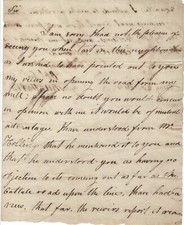 Sir,
I am sorry I had not the pleasure of
seeing you when last in this neighbourhood
as I wished to have pointed out to you
my views in opening the road from my
mill: where no doubt you would concur
in opinion with me it would be of mutual
advantage than understood from Mr.
that he mentioned it to you and
that he understood you as having no
objection to its coming out as far as the
cattle roads upon the line, than had a
view, that far. the viewers report it was